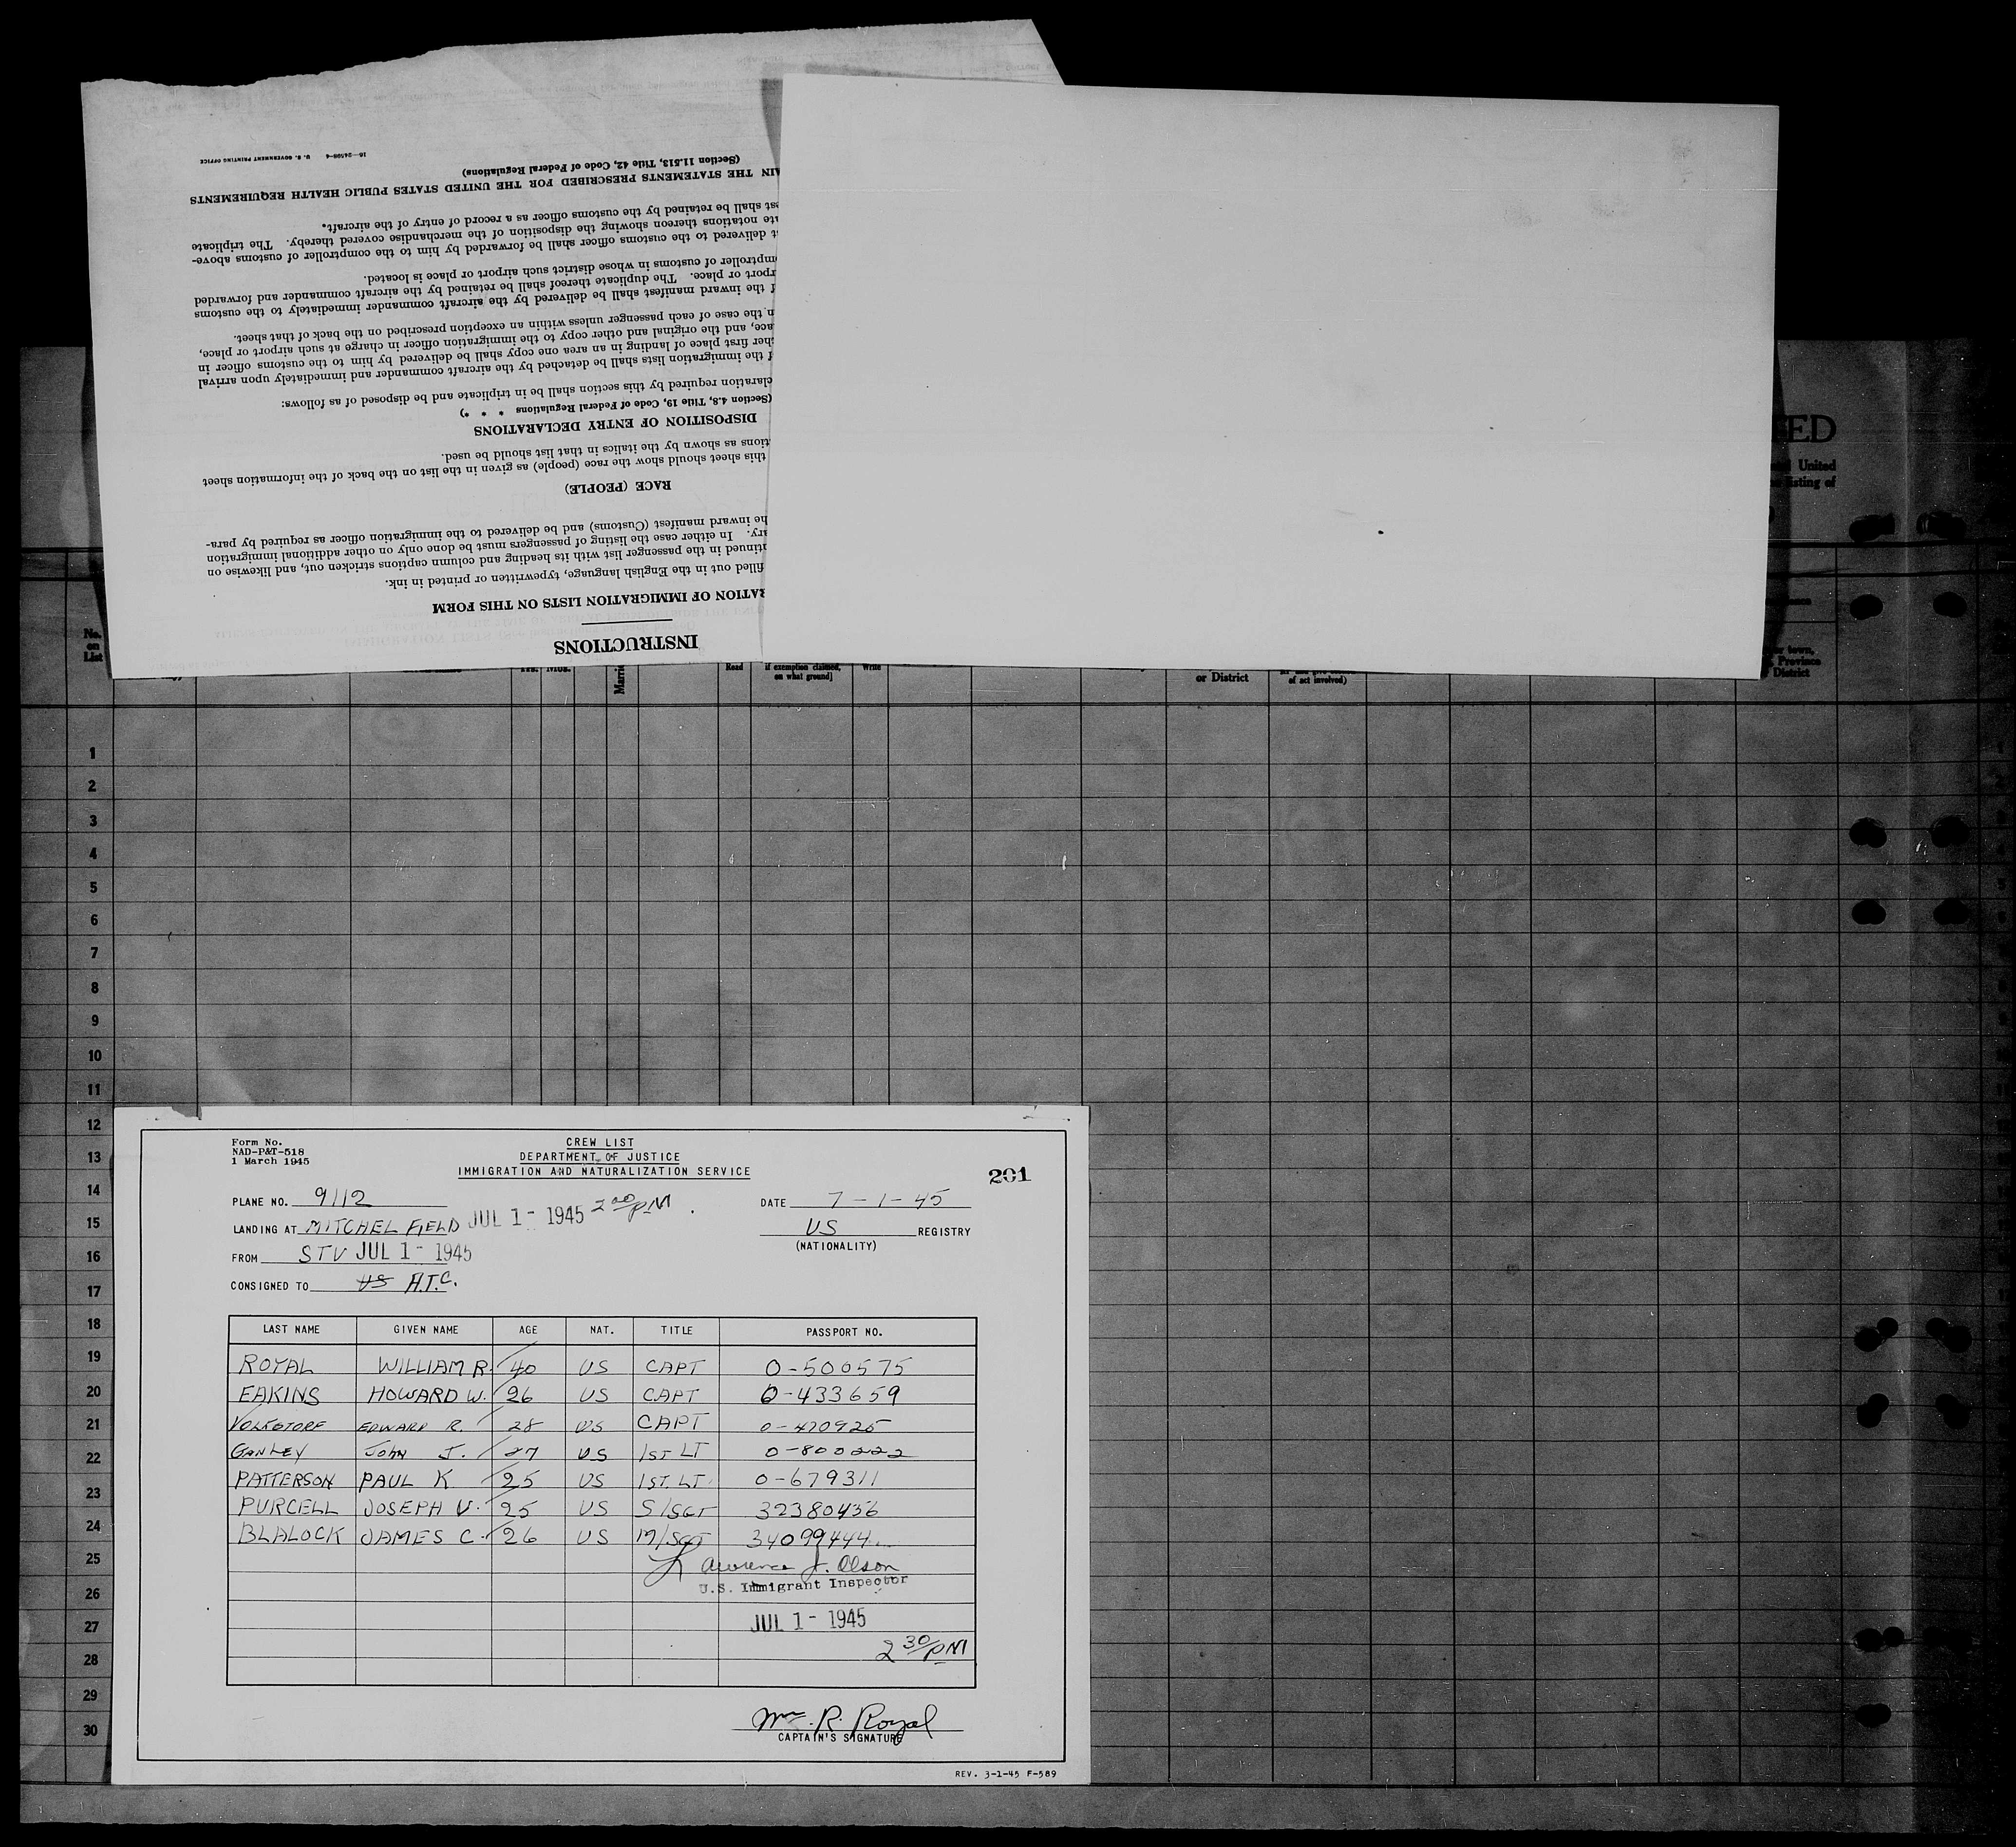 INSTRUCTIONS
RATION OF IMMIGRATION LISTS ON THIS FORM
filled out in the English language, typewritten or printed in ink.
tinued in the passenger list with its heading and column captions stricken out, and likewise on
ary. In either case the listing of passengers must be done only on other additional immigration
he inward manifest (Customs) and be delivered to the immigration officer as required by para-
RACE (PEOPLE)
this sheet should show the race (people) as given in the list on the back of the information sheet
tions as shown by the italics in that list should be used.
DISPOSITION OF ENTRY DECLARATIONS
(Section 4.8, Title 19, Code of Federal Regulations * * *)
claration required by this section shall be in triplicate and be disposed of as follows:
f the immigration lists shall be detached by the aircraft commander and immediately upon arrival
her first place of landing in an area one copy shall be delivered by him to the customs officer in
ace, and the original and other copy to the immigration officer in charge at such airport or place,
n the case of each passenger unless within an exception prescribed on the back of that sheet.
f the inward manifest shall be delivered by the aircraft commander immediately to the customs
rport or place. The duplicate thereof shall be retained by the aircraft commander and forwarded
mptroller of customs in whose district such airport or place is located.
t delivered to the customs officer shall be forwarded by him to the comptroller of customs above-
ate notations thereon showing the disposition of the merchandise covered thereby. The triplicate
est shall be retained by the customs officer as a record of entry of the aircraft.
AIN THE STATEMENTS PRESCRIBED FOR THE UNITED STATES PUBLIC HEALTH REQUIREMENTS
(Section 11.513, Title 42, Code of Federal Regulations)
16—24098-4 U. S. GOVERNMENT PRINTING OFFICE
ED
United
listing of
No. on List
Read
if exemption claimed, on what ground]
Write
or District
of act involved)
town,
Province
District
1
2
3
4
5
6
7
8
9
10
11
12
13
14
15
16
17
18
19
20
21
22
23
24
25
26
27
28
29
30
Form No.
NAD-P&T-518
1 March 1945
CREW LIST
DEPARTMENT OF JUSTICE
IMMIGRATION AND NATURALIZATION SERVICE
201
PLANE NO. 9112
DATE 7-1-45
LANDING AT MITCHEL FIELD JUL 1 - 1945 2 00/PM
US REGISTRY
(NATIONALITY)
FROM STV JUL 1 - 1945
CONSIGNED TO US A.T.C.
LAST NAME GIVEN NAME AGE NAT. TITLE PASSPORT NO.
ROYAL WILLIAM R. 40 US CAPT O-500575
EAKINS HOWARD W. 26 US CAPT O-433659
EDWARD R. 28 US CAPT O-470925
GANLEY JOHN J. 27 US 1ST LT O-800222
PATTERSON PAUL K 25 US 1ST. LT. O-679311
PURCELL JOSEPH V. 25 US S/SGT 32380436
BLALOCK JAMES C. 26 US M/SGT 34099444
Lawrence J. Olson
U.S. Immigrant Inspector
JUL 1 - 1945
2 30/PM
Wm. R. Royal
CAPTAIN'S SIGNATURE
REV. 3-1-45 F-589